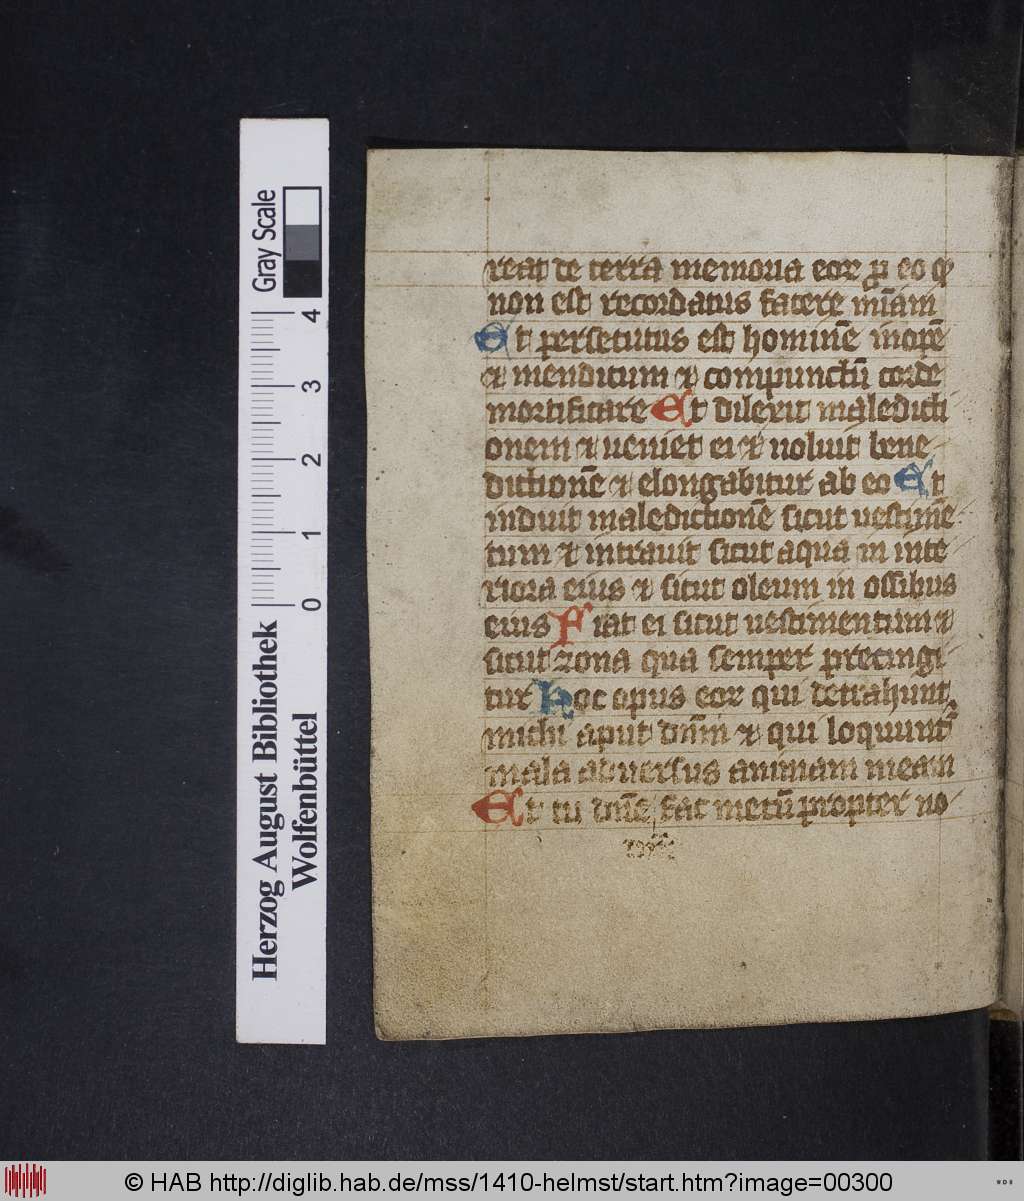 reat de terra memoria eoꝝ ꝓ eo ꝙ
non est recordatus facere mīam
Et persecutus est hominē inopē
et mendicum et compunctū corde
mortificare Et dilexit maledicti
onem et veniet ei et noluit bene
dictionē et elongabitur ab eo Et
induit maledictionē sicut vestimē
tum et intravit sicut aqua in inte
riora eius et sicut oleum in ossibus
eius Fiat ei sicut vestimentum et
sicut zona qua semper precingi
tur Hoc opus eoꝝ qui detrahunt
michi aput dn̄m et qui loquunt᷑
mala adversus animam meam
Et tu dn̄e fac mecū propter no
Gray Scale
4
3
2
1
0
Herzog August Bibliothek
Wolfenbüttel
© HAB http://diglib.hab.de/mss/1410-helmst/start.htm?image=00300